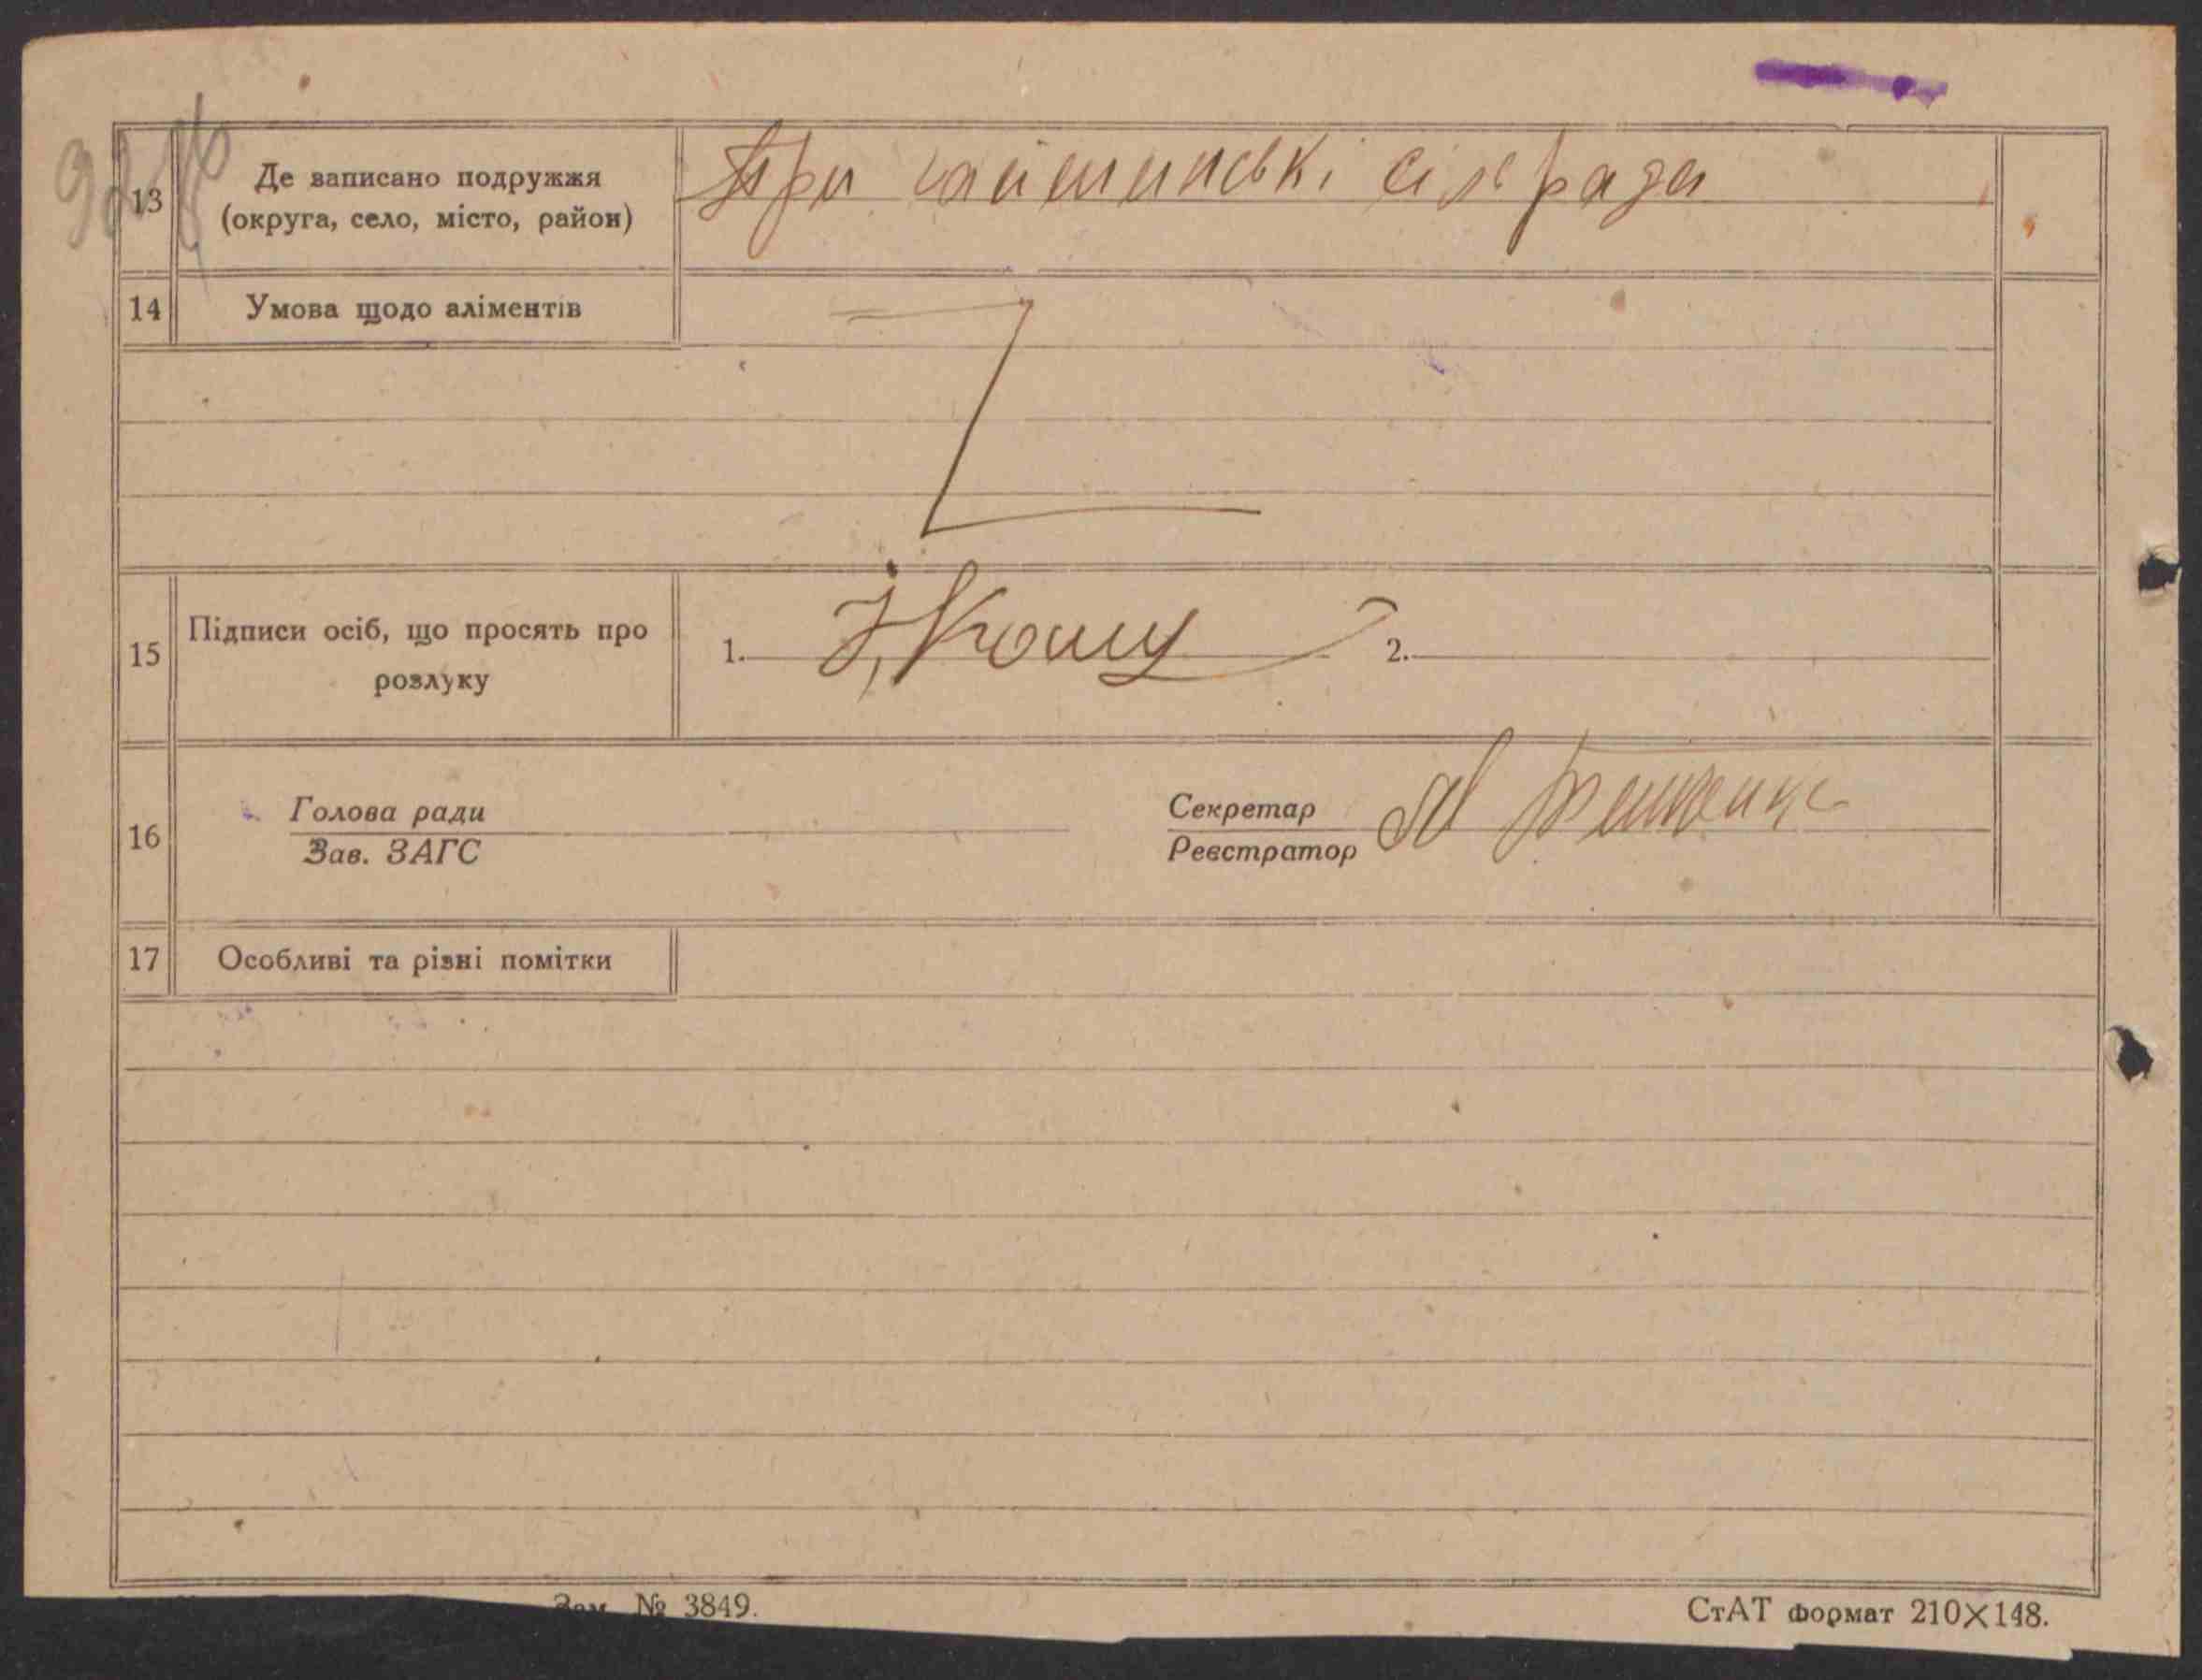 13 Де записано подружжя
(округа, село, місто, район)
При сільради
14 Умова щодо аліментів
15 Підписи осіб, що просять про
розлуку
1. 2.
16 Голова ради
Зав. ЗАГС
Секретар
Реєстратор
17 Особливі та різні помітки
Зам. № 3849.
СтАТ формат 210×148.